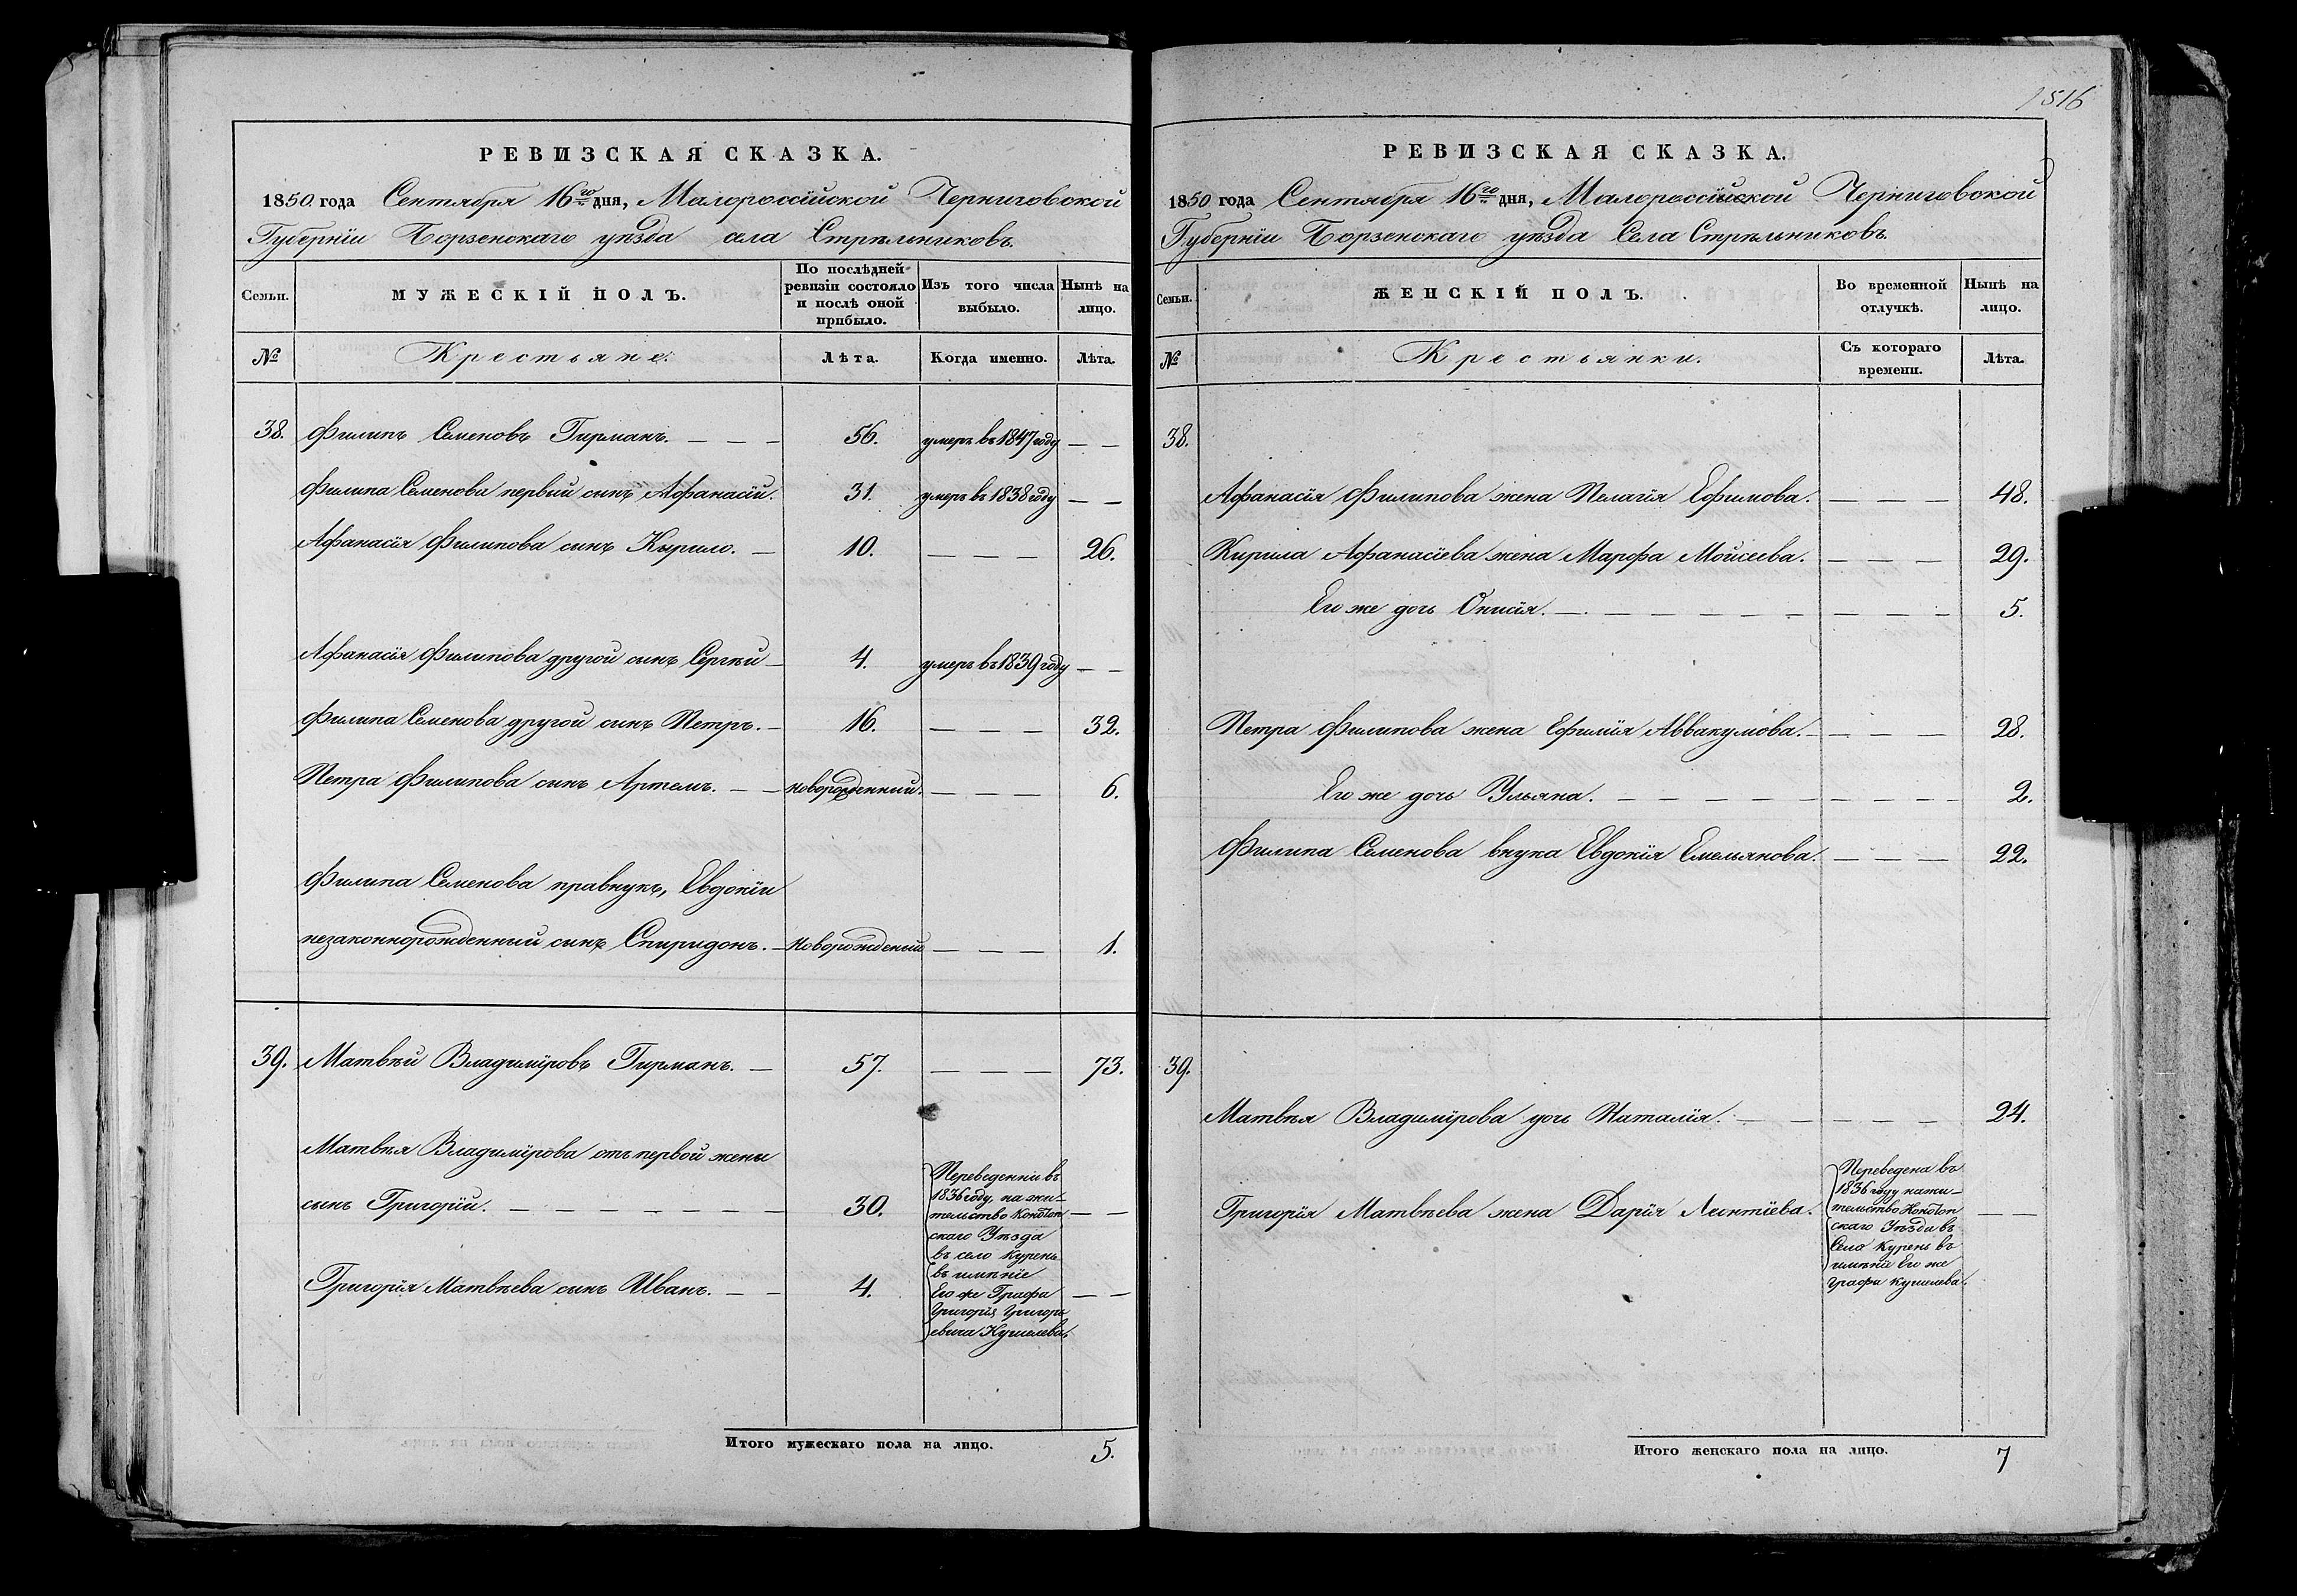 РЕВИЗСКАЯ СКАЗКА.
1850 года Сентября 16го дня, Малороссійской Черниговской
Губерніи Борзенскаго уѣзда села Стрѣльниковъ.
Семьи.
МУЖЕСКІЙ ПОЛЪ.
По послѣдней
ревизіи состояло
и послѣ оной
прибыло.
Изъ того числа
выбыло.
Нынѣ на
лицо.
№
Крестьяне.
Лѣта.
Когда именно.
Лѣта.
38. Филипъ Семеновъ Гирманъ. — — — 56. умеръ въ 1847 году — —
Филипа Семенова первый сынъ Афанасій. 31. умеръ въ 1838 году — —
Афанасія Филипова сынъ Кырило. — 10. — — — 26.
Афанасія Филипова другой сынъ Сергѣй — 4. умеръ въ 1839 году — —
Филипа Семенова другой сынъ Петръ. — 16. — — — 32.
Петра Филипова сынъ Артемъ. — — новорожденный. — — — 6.
Филипа Семенова правнукъ, Евдокіи
незаконнорожденный сынъ Спиридонъ. — новорожденый — — — 1.
39. Матвѣй Владиміровъ Гирманъ. — 57. — — — 73.
Матвѣя Владимірова отъ первой жены
сынъ Григорій. — — — — — — — 30. — —
Григорія Матвѣева сынъ Иванъ. — — 4. — —
Переведенни въ
1836 году, на жи-
тельство Конотоп
скаго Уѣзда
въ село Курень
въ имѣніе
Его же Графа
Григорія Григорь
евича Кушелева.
Итого мужескаго пола на лицо. 5.
1516
РЕВИЗСКАЯ СКАЗКА.
1850 года Сентября 16го дня, Малороссійской Черниговской
Губерніи Борзенскаго уѣзда Села Стрѣльниковъ.
Семьи.
ЖЕНСКІЙ ПОЛЪ.
Во временной
отлучкѣ.
Нынѣ на
лицо.
№
Крестьянки.
Съ котораго
времени.
Лѣта.
38.
Афанасія Филипова жена Пелагія Ефимова. — — — 48.
Кирила Афанасіева жена Марфа Моисеева. — — — 29.
Его же дочь Онисія. — — — — — — — — — 5.
Петра Филипова жена Ефимія Аввакумова. — — — — 28.
Его же дочь Ульяна. — — — — — — — — — 2.
Филипа Семенова внука Евдокія Емельянова. — — — 22.
39.
Матвѣя Владимірова дочь Наталія. — — — — — 24.
Григорія Матвѣева жена Дарія Леонтіева. — —
Переведена въ
1836 году на жи-
тельство Конотоп
скаго Уѣзда въ
Село Курень въ
имѣніе Его же
Графа Кушелева.
Итого женскаго пола на лицо. 7